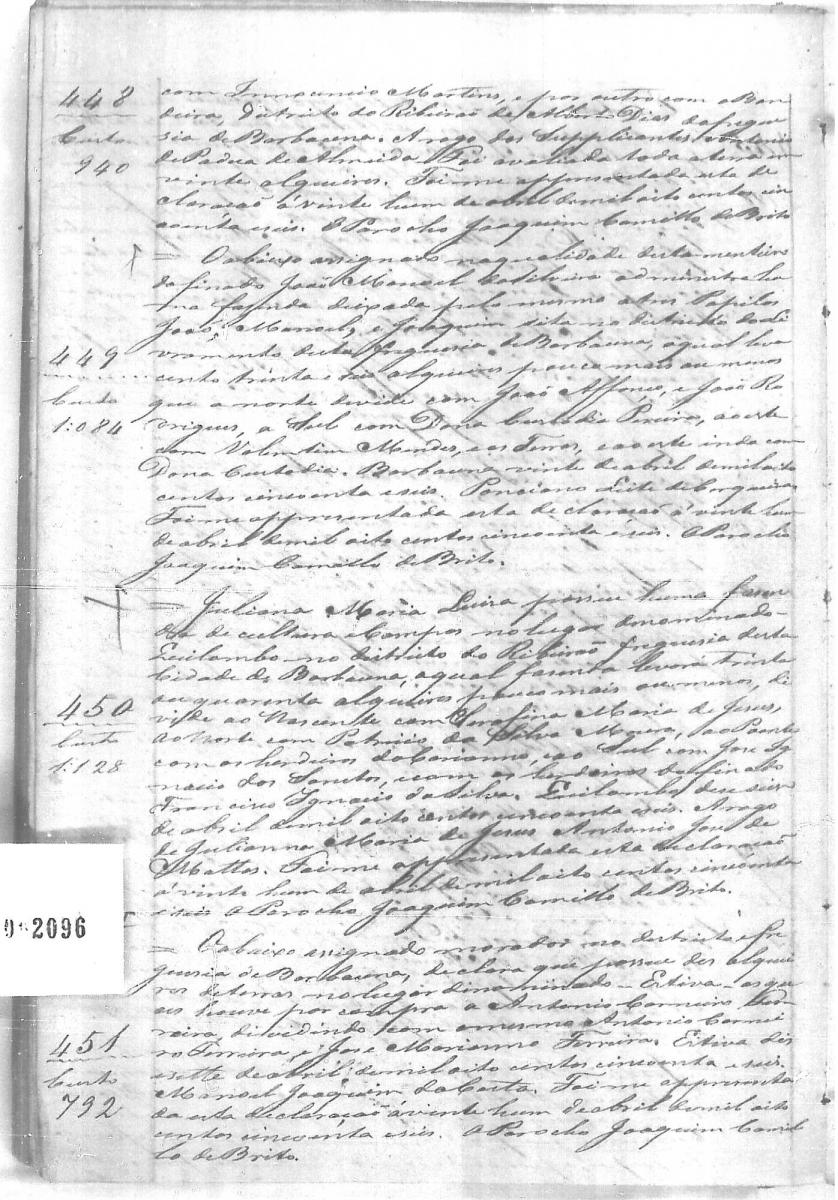 448
Custo
940
com Innocencio Martins, e por outro com a Ban
deira, districto do Ribeirão de Alberto Dias da fregue
sia de Barbacena. A rogo dos Supplicantes Antonio
de Padua de Almeida. Foi avaliada toda a terra em
vinte alqueires. Foi me appresentada esta de
claração á vinte hum de abril de mil oito centos cin
coenta e seis. O Parocho Joaquim Camillo de Brito
= O abaixo assignado na qualidade de testamenteiro
do finado João Manoel da Silveira administra hu
ma fazenda deixada pelo mesmo a tres Pupilos
João, Manoel, e Joaquim sita no districto do Li
449
vramento desta freguesia de Barbacena, a qual leva
cento trinta e seis alqueires pouco mais ou menos
Custo
que a norte divide com João Affonso, e João Ro
1:084
drigues, a Sul com Dona Custodia Pereira, a este
com Valentim Mendes, e os Terras, e a oeste inda com
Dona Custodia. Barbacena vinte de abril de mil oito
centos cincoenta e seis. Ponciano Leite de
Foi me appresentada esta declaração á vinte hum
de abril de mil oito centos cincoenta e seis. O Parocho
Joaquim Camillo de Brito.
= Juliana Maria Luiza possue huma fazen
da de cultura e Campos no lugar denominado-
Quilombo- no districto do Ribeirão freguesia desta
Cidade de Barbacena, a qual fazenda levará trinta
ou quarenta alqueires pouco mais ou menos, di
450
vide ao Nascente com Serafina Maria de Jesus,
Custo
ao Norte com Patricio da Silva Moura, ao Poente
1:128
com os herdeiros do Carianno, e ao Sul com José Ig
nacio dos Santos, e com os herdeiros do finado
Francisco Ignacio da Silva. Quilombo
de abril de mil oito centos cincoenta e seis. A rogo
de Julianna Maria de Jesus Antonio José de
Mattos. Foi me appresentada esta declaração
á vinte hum de abril de mil oito centos cincoenta
e seis O Parocho Joaquim Camillo de Brito.
2096
= O abaixo assignado morador no destricto e fre
guesia de Barbacena, declara que possue des alquei
res de terras no lugar dinominado - Estiva - as qua
es houve por compra a Antonio Carneiro Fer
reira, dividindo com o mesmo Antonio Carnei
451
ro Ferreira, e José Marianno Ferreira. Estiva des
esette de abril de mil oito centos cincoenta e seis.
Custo
Manoel Joaquim da Costa. Foi me appresenta
792
da esta declaração á vinte hum de abril de mil oito
centos cincoenta e seis. O Parocho Joaquim Camil
lo de Brito.